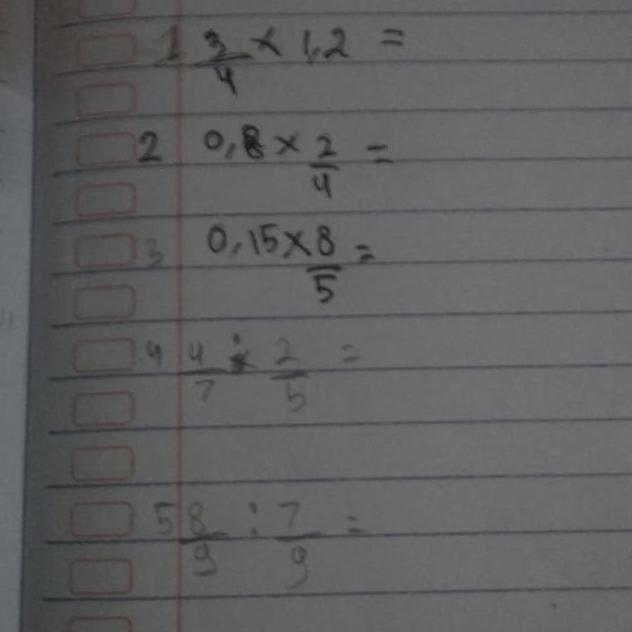 1 3/4 × 1,2 =
2 0,8 × 2/4 =
3 0,15 × 8/5 =
4 4/7 : 2/5 =
5 8/9 : 7/9 =